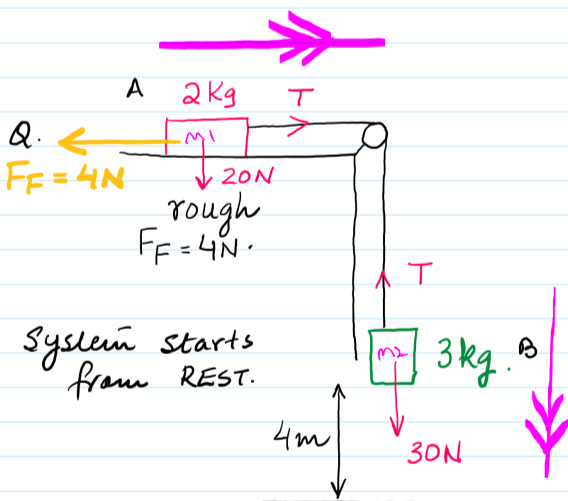 A 2Kg T
Q. m1
FF = 4N 20N
rough
FF = 4N.
T
System starts
from REST.
m2 3kg. B
4m
30N